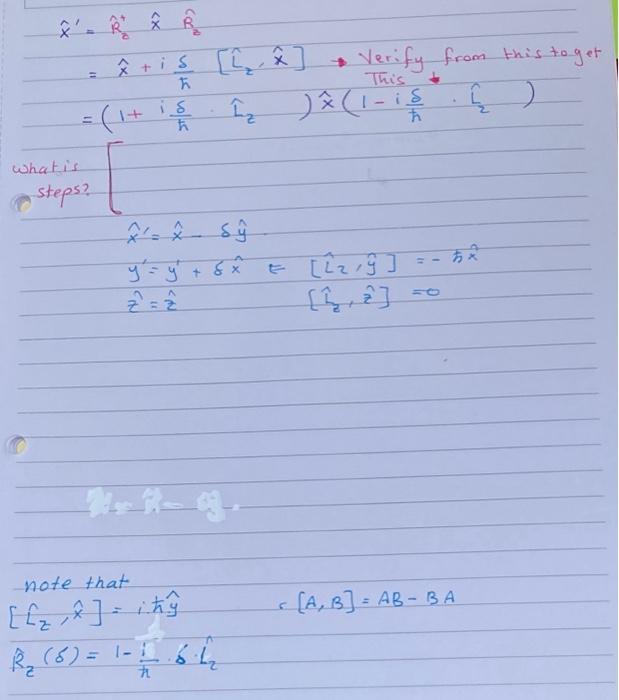 x̂' = R̂z⁺ x̂ R̂z
= x̂ + i δ/ħ [L̂z, x̂] → Verify from this to get
This ↓
= (1 + i δ/ħ . L̂z ) x̂ (1 - i δ/ħ . L̂z )
what is
steps?
x̂' = x̂ - δŷ
y' = y' + δx̂ ⇐ [L̂z, ŷ] = - ħ x̂
ẑ' = ẑ [L̂z, ẑ] = 0
note that
[L̂z, x̂] = iħŷ
[A, B] = AB - BA
R̂z (δ) = 1 - i/ħ . δ . L̂z